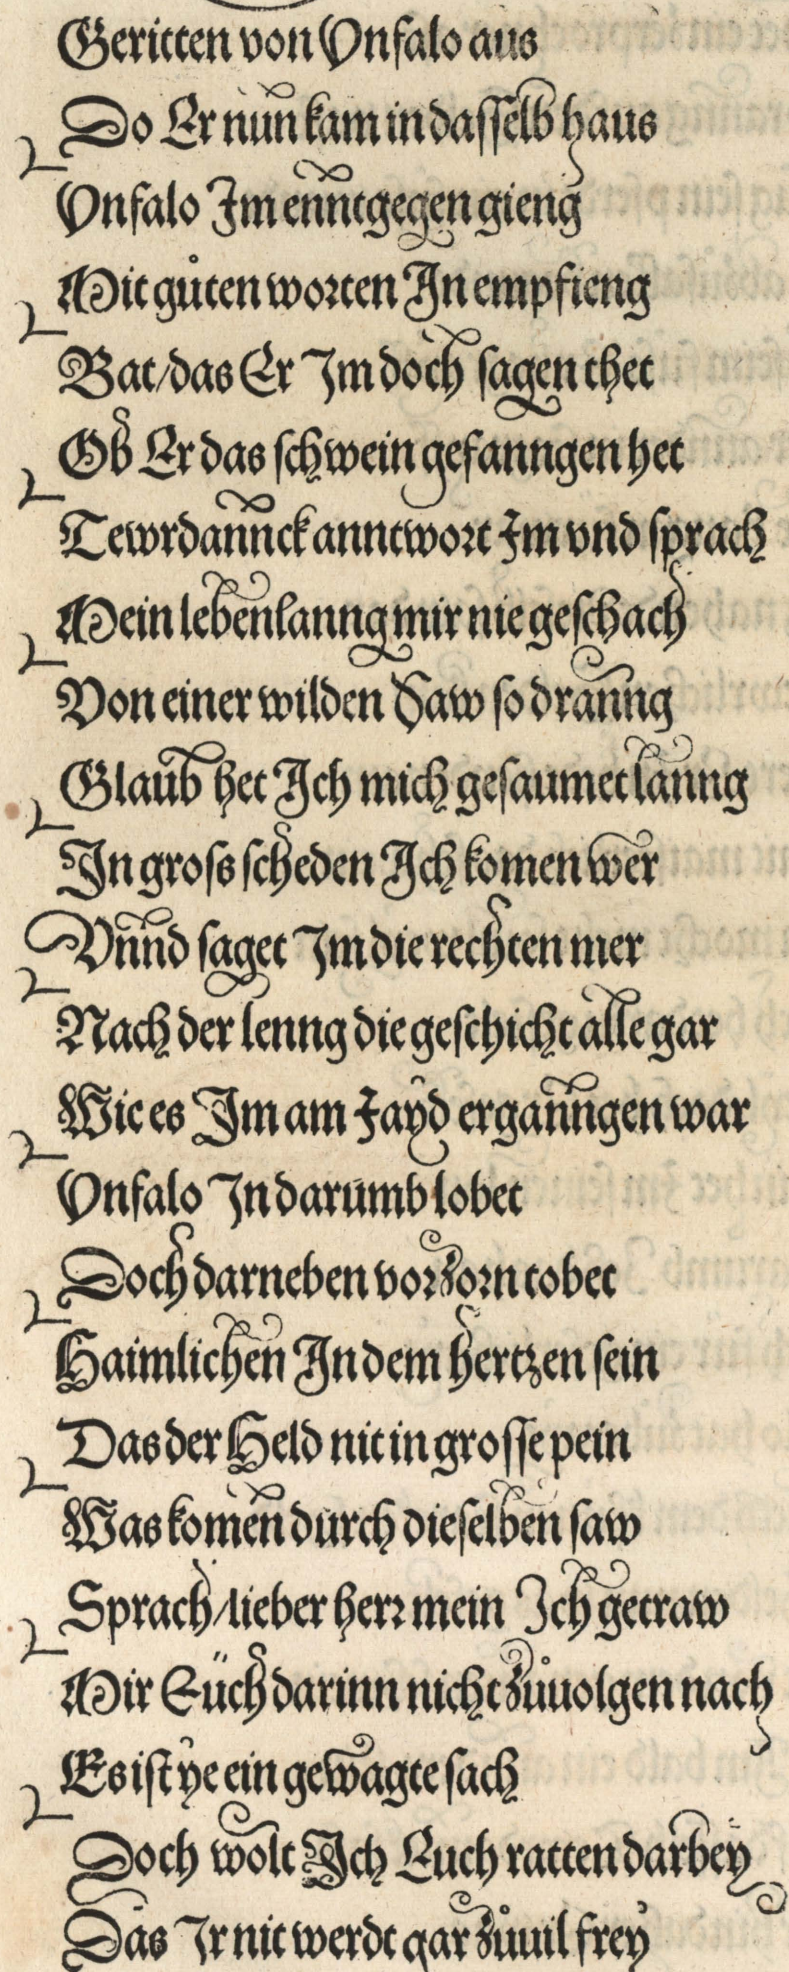 Geritten von Vnfalo aus
Do Er nun kam in dasselb haus
Vnfalo Im enntgegen gieng
Mit gůten worten In empfieng
Bat/das Er Im doch sagen thet
Ob Er das schwein gefanngen het
Tewrdannck anntwort Im vnd sprach
Mein lebenlanng mir nie geschach
Von einer wilden Saw so dranng
Glaub het Ich mich gesaumet lanng
In gross scheden Ich komen wer
Vnnd saget Im die rechten mer
Nach der lenng die geschicht alle gar
Wie es Im am Jayd erganngen war
Vnfalo In darumb lobet
Doch darneben vor zorn tobet
Haimlichen In dem hertzen sein
Das der Held nit in grosse pein
Was komen durch dieselben saw
Sprach/lieber herr mein Ich getraw
Mir Eüch darinn nicht zůuolgen nach
Es ist ye ein gewagte sach
Doch wolt Ich Euch ratten darbey
Das Ir nit werdt gar zůuil frey